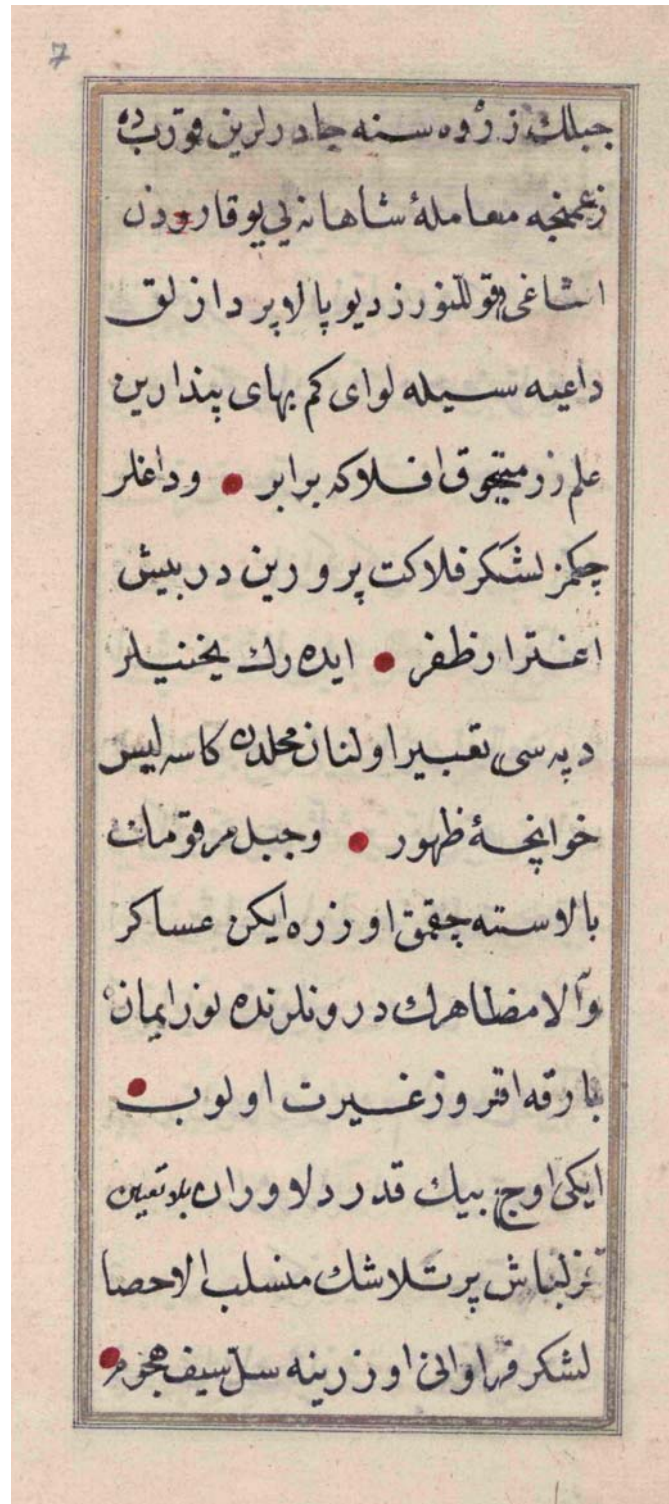 7
جبلك ذروه سنه چادرلرين قوروب ده
زعمنجه معاملۀ شاهانه يى يوقارودن
اشاغى قوللنورز ديو پالا پردازلق
داعيه سيله لواى كم بهاى پندارين
علم زر منجوق افلاكه برابر • وداغلر
چكمز لشكر فلاكت پرورين درپيش
اغترار ظفر • ايده رك يخنيلر
دپه سى تعبير اولنان محلدن كاسه ليس
خوانچۀ ظهور • وجبل مرقومك
بالاسنه چقمق اوزره ايكن عساكر
والا مظاهرك درونلرنده نور ايمان
بارقه افروز غيرت اولوب •
ايكى اوچ بيك قدر دلاوران بلا تعيين
قزلباش پرتلاشك منسلب الاحصا
لشكر فراوانى اوزرينه سل سيف هجوم •